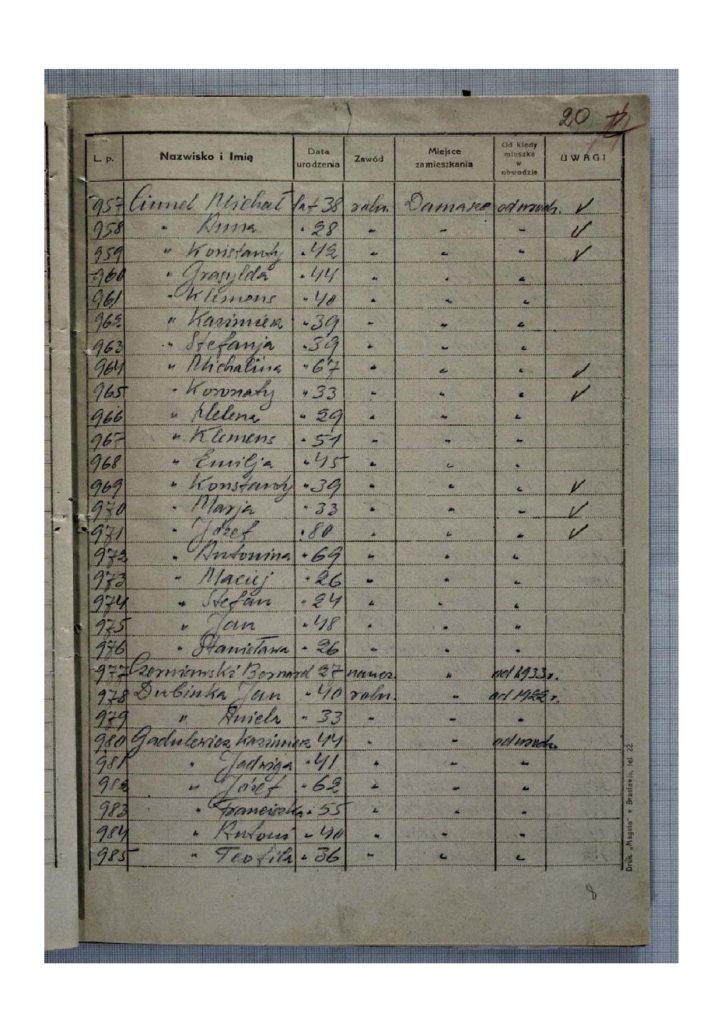 20
L. p. Nazwisko i Imię Data urodzenia Zawód Miejsce zamieszkania Od kiedy mieszka w obwodzie UWAGI
957 Michał lat 38 roln. od urodz. ✓
958 " Anna " 28 " " " ✓
959 " Konstanty " 42 " " " ✓
960 " Grasylda " 44 " " "
961 " Klemens " 40 " " "
962 " Kazimiera " 39 " " "
963 " Stefanja " 39 " " "
964 " Michalina " 67 " " " ✓
965 " Koronaty " 33 " " " ✓
966 " Helena " 29 " " "
967 " Klemens " 51 " " "
968 " Emilja " 45 " " "
969 " Konstanty " 39 " " " ✓
970 " Marja " 33 " " " ✓
971 " Józef " 80 " " " ✓
972 " Antonina " 69 " " "
973 " Maciej " 26 " " "
974 " Stefan " 24 " " "
975 " Jan " 48 " " "
976 " Stanisława " 26 " " "
977 Czerniawski Bernard 27 naucz. " od 1933 r.
978 Dubinka Jan " 40 roln. " od 1922 r.
979 " Aniela " 33 " " "
980 Gadulewicz Kazimierz 44 " " od urodz.
981 " Jadwiga " 41 " " "
982 " Józef " 62 " " "
983 " Franciszka " 55 " " "
984 " Antoni " 40 " " "
985 " Teofila " 36 " " "
Druk. „Magnta" w Brasławiu, tel. 22
8